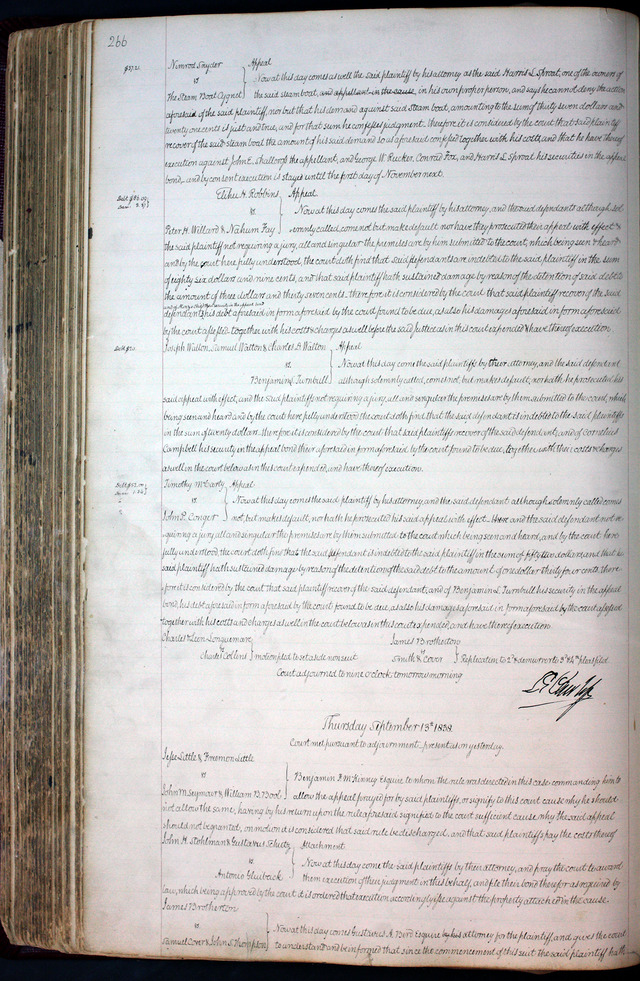 266
$37.21
Nimrod Snyder } Appeal
vs Now at this day comes as well the said plaintiff by his attorney as the said Harris L Sproat, one of the owners of
The Steam Boat Cygnet the said steam boat, and appellant in the cause, in his own proper person, and says he cannot deny the action
aforesaid of the said plaintiff, nor but that his demand against said steam boat, amounting to the sum of thirty seven dollars and
twenty one cents is just and true, and for that sum he confesses judgment. Therefore it is considered by the court that said plaintiff
recover of the said steam boat the amount of his said demand so as aforesaid confessed together with his costs, and that he have thereof
execution against John E. the appellant, and George W. Rucker, Conrad Fox, and Harris L. Sproat his securities in the appeal
bond, and by consent execution is stayed until the first day of November next.
Debt $86.09
Dam. 3.37
Elihu H. Robbins } Appeal
vs Now at this day comes the said plaintiff by his attorney, and the said defendants although sol-
Peter H. Willard & Nahum Fay emnly called, come not but make default, nor have they prosecuted their appeal with effect &
the said plaintiff not requiring a jury, all and singular the premises are by him submitted to the court, which being seen & heard
and by the court here fully understood, the court doth find that said defendants are indebted to the said plaintiff in the sum
of eighty six dollars and nine cents, and that said plaintiff hath sustained damage by reason of the detention of said debt to
the amount of three dollars and thirty seven cents. therefore it is considered by the court that said plaintiff recover of the said
defendants his debt aforesaid in form aforesaid by the court found to be due, as also his damages aforesaid in form aforesaid
by the court assessed together with his costs & charges as well before the said Justice as in this court expended & have thereof execution.
Debt $20.
Joseph Walton, Samuel Walton & Charles B. Walton } Appeal
vs Now at this day come the said plaintiffs by their attorney, and the said defendant
Benjamin L Turnbull although solemnly called, comes not, but makes default, nor hath he prosecuted his
said appeal with effect, and the said plaintiffs not requiring a jury, all and singular the premises are by them submitted to the court, which
being seen and heard and by the court here fully understood the court doth find, that the said defendant is indebted to the said plaintiffs
in the sum of twenty dollars. Therefore it is considered by the court that said plaintiffs recover of the said defendant, and of Cornelius
Campbell his security in the appeal bond their debt aforesaid in form aforesaid by the court found to be due, together with their costs & charges
as well in the court below as in this court expended, and have thereof execution.
Debt $52.00
Dam. 1.34
Timothy McCarty } Appeal
vs Now at this day comes the said plaintiff by his attorney, and the said defendant although solemnly called comes
John P. Conger not, but makes default, nor hath he prosecuted his said appeal with effect. there and the said defendant not re-
quiring a jury, all and singular the premises are by them submitted to the court which being seen and heard, and by the court here
fully understood, the court doth find that the said defendant is indebted to the said plaintiff in the sum of fifty two dollars, and that the
said plaintiff hath sustained damage by reason of the detention of the said debt to the amount of one dollar thirty four cents. there-
fore it is considered by the court that said plaintiff recover of the said defendant, and of Benjamin L. Turnbull his security in the appeal
bond, his debt aforesaid in form aforesaid by the court found to be due, as also his damages aforesaid in form aforesaid by the court assessed
together with his costs and charges as well in the court below as in this court expended, and have thereof execution.
Charles Leon Longuemare
vs
Charles Collins } motion pled to set aside non suit
James Brotherton
vs
Smith & Cover } Replication to 2d & demurrer to 3d & 4th pleas filed
Court adjourned to nine o'clock, tomorrow morning
Thursday September 13th 1838.
Court met pursuant to adjournment. present as on yesterday.
Jesse Little & Freemon Little
vs Benjamin F. McKinney Esquire to whom the rule was directed in this case commanding him to
John M. Seymour & William B. Bool allow the appeal prayed for by said plaintiffs, or signify to this court cause why he should
not allow the same, having by his return upon the rule aforesaid signified to the court sufficient cause, why the said appeal
should not be granted, on motion it is considered that said rule be discharged, and that said plaintiffs pay the costs thereof
John H. Stohlman & Gustavus Schietz } Attachment
vs Now at this day come the said plaintiffs by their attorney, and pray the court to award
Antonio them execution of their judgment in this behalf, and file their bond therefor as required by
law, which being approved by the court it is ordered that execution accordingly issue against the property attached in the cause.
James Brotherton
vs Now at this day comes Gustavus A. Berd Esquire by his attorney for the plaintiff, and gives the court
Samuel Cover & John S. Thompson to understand and be informed that since the commencement of this suit the said plaintiff hath